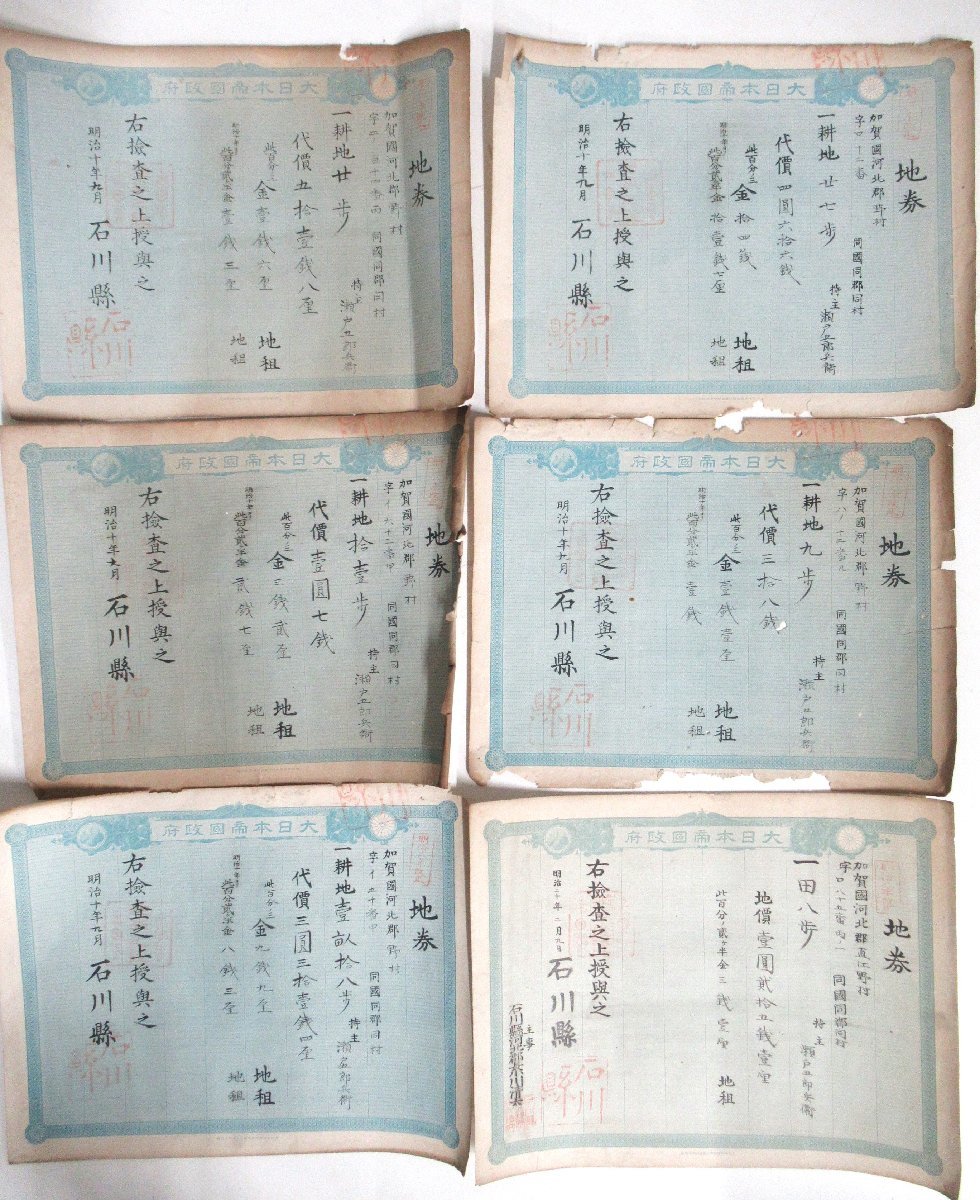 大日本帝國政府
地券
加賀國河北郡野村
同國同郡同村
一耕地廿歩
持主
瀬戸五郎兵衛
代價五拾壹銭八厘
此百分ノ三
金壹銭六厘
地租
此百分ノ貳半金壹銭三厘
地租
右撿査之上授與之
明治十年九月
石川縣
大日本帝國政府
地券
加賀國河北郡野村
字ロ十二番
同國同郡同村
一耕地廿七歩
持主
瀬戸五郎兵衛
代價四圓六拾六銭
此百分ノ三
金拾四銭
地租
此百分ノ貳半金拾壹銭七厘
地租
右撿査之上授與之
明治十年九月
石川縣
大日本帝國政府
地券
加賀國河北郡野村
同國同郡同村
一耕地拾壹歩
持主
瀬戸五郎兵衛
代價壹圓七銭
此百分ノ三
金三銭貳厘
地租
此百分ノ貳半金貳銭七厘
地租
右撿査之上授與之
明治十年九月
石川縣
大日本帝國政府
地券
加賀國河北郡野村
同國同郡同村
一耕地九歩
持主
瀬戸五郎兵衛
代價三拾八銭
此百分ノ三
金壹銭壹厘
地租
此百分ノ貳半金壹銭
地租
右撿査之上授與之
明治十年九月
石川縣
大日本帝國政府
地券
加賀國河北郡野村
同國同郡同村
一耕地壹畝拾八歩
持主
瀬戸五郎兵衛
代價三圓三拾壹銭四厘
此百分ノ三
金九銭九厘
地租
此百分ノ貳半金八銭三厘
地租
右撿査之上授與之
明治十年九月
石川縣
大日本帝國政府
地券
加賀國河北郡直江野村
同國同郡同村
一田八歩
持主
瀬戸五郎兵衛
地價壹圓貳拾五銭壹厘
此百分ノ貳ヶ半金三銭壹厘
地租
右撿査之上授與之
石川縣
主事